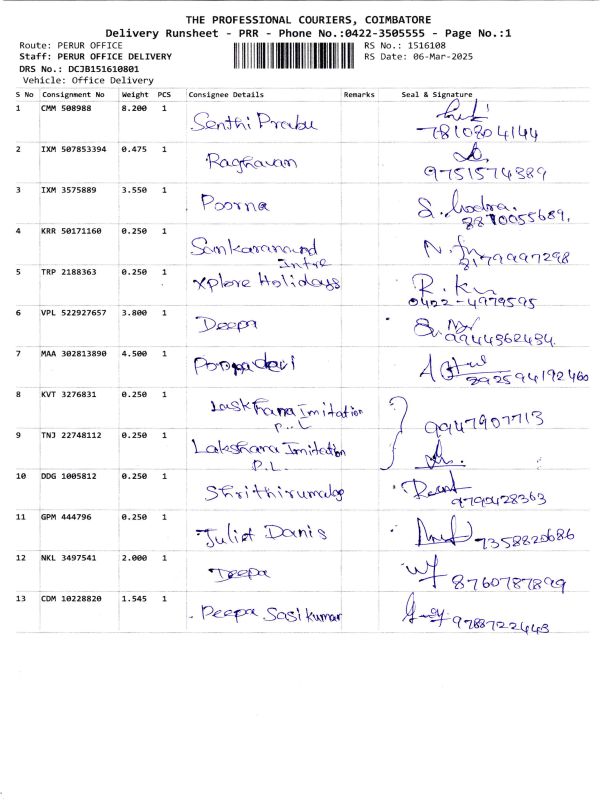 THE PROFESSIONAL COURIERS, COIMBATORE
Delivery Runsheet - PRR - Phone No.:0422-3505555 - Page No.:1
Route: PERUR OFFICE
Staff: PERUR OFFICE DELIVERY
DRS No.: DCJB151610801
Vehicle: Office Delivery
RS No.: 1516108
RS Date: 06-Mar-2025
S No Consignment No Weight PCS Consignee Details Remarks Seal & Signature
1 CMM 508988 8.200 1 Senthi Prabu 7810804144
2 IXM 507853394 0.475 1 Raghavan 9751574389
3 IXM 3575889 3.550 1 Poorna 8870055689.
4 KRR 50171160 0.250 1 8179997298
5 TRP 2188363 0.250 1 Xplore Holidays 0422-4979595
6 VPL 522927657 3.800 1 Deepa 9944362434.
7 MAA 302813890 4.500 1
8 KVT 3276831 0.250 1 Imitation P.L 9947907713
9 TNJ 22748112 0.250 1 Lakshana Imitation P.L.
10 DDG 1005812 0.250 1 9790428363
11 GPM 444796 0.250 1 Juliet Danis 7358820686
12 NKL 3497541 2.000 1 Deepa 8760787899
13 CDM 10228820 1.545 1 Deepa Sasikumar 9788722443